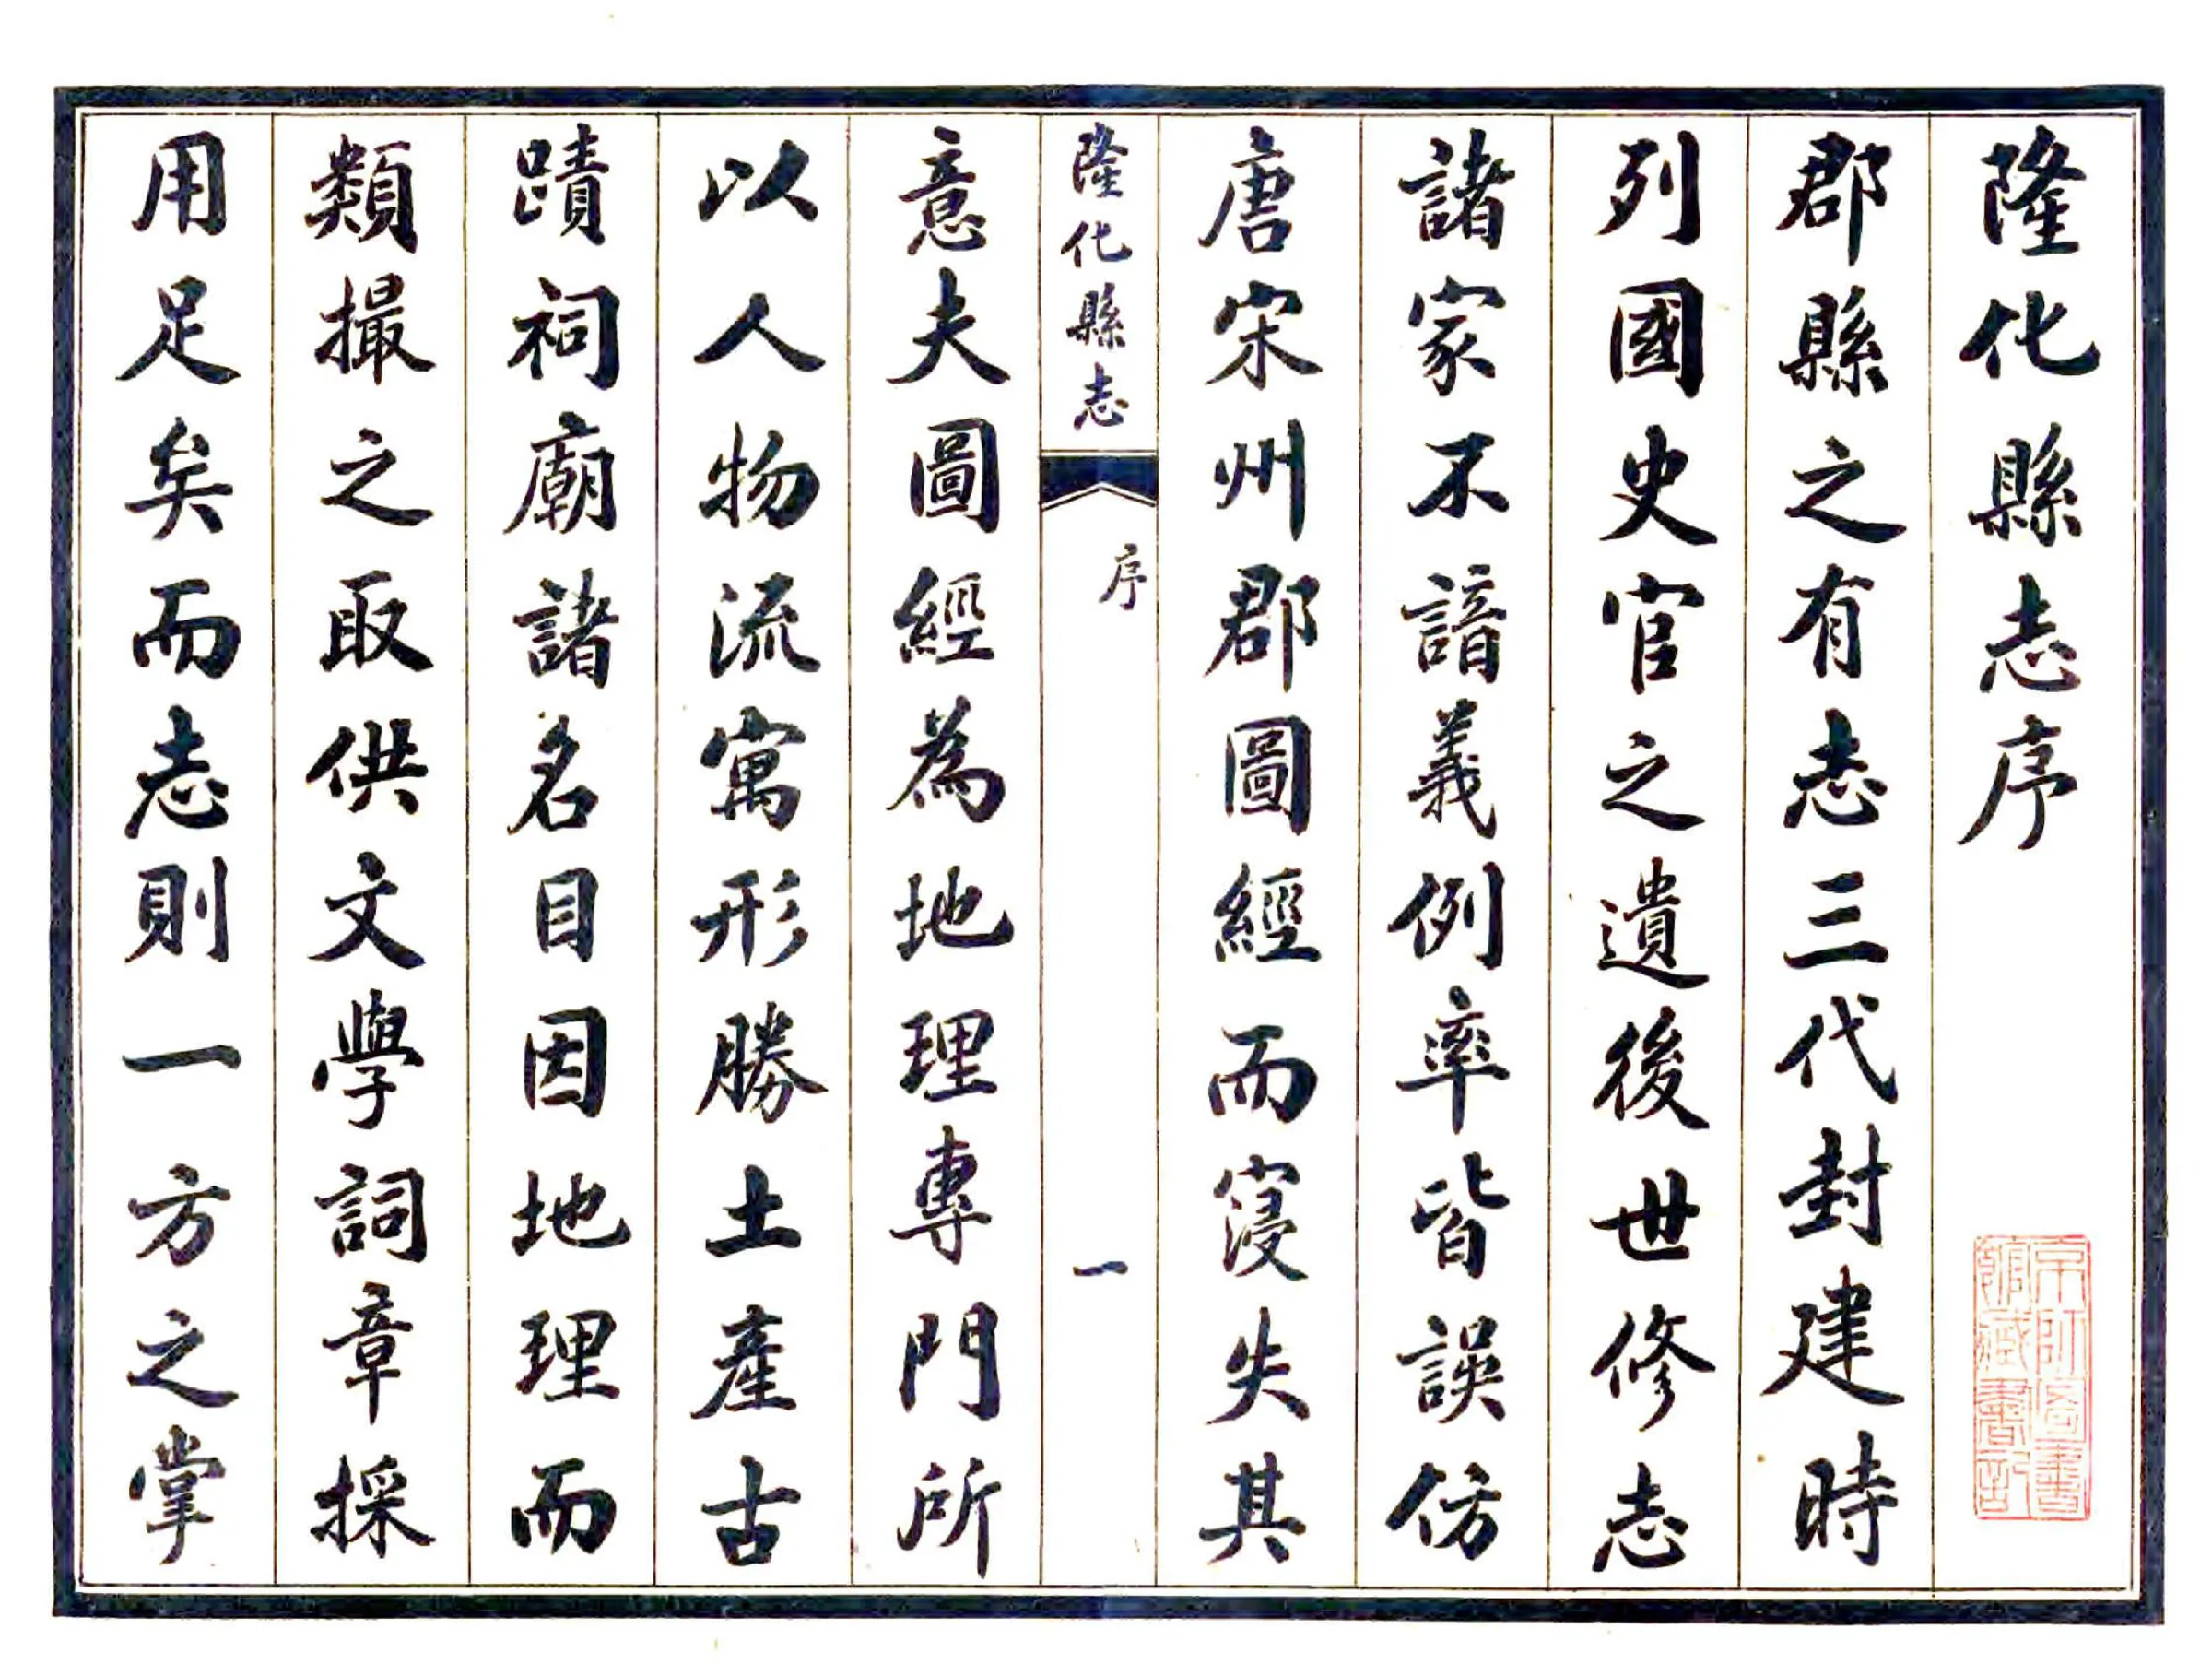 隆化縣志序
郡縣之有志三代封建時
列國史官之遺後世修志
諸家不諳義例率皆誤仿
唐宋州郡圖經而寖失其
隆化縣志
序
一
意夫圖經為地理專門所
以人物流寓形勝土產古
蹟祠廟諸名目因地理而
類撮之取供文學詞章採
用足矣而志則一方之掌
京師圖書
館藏書記